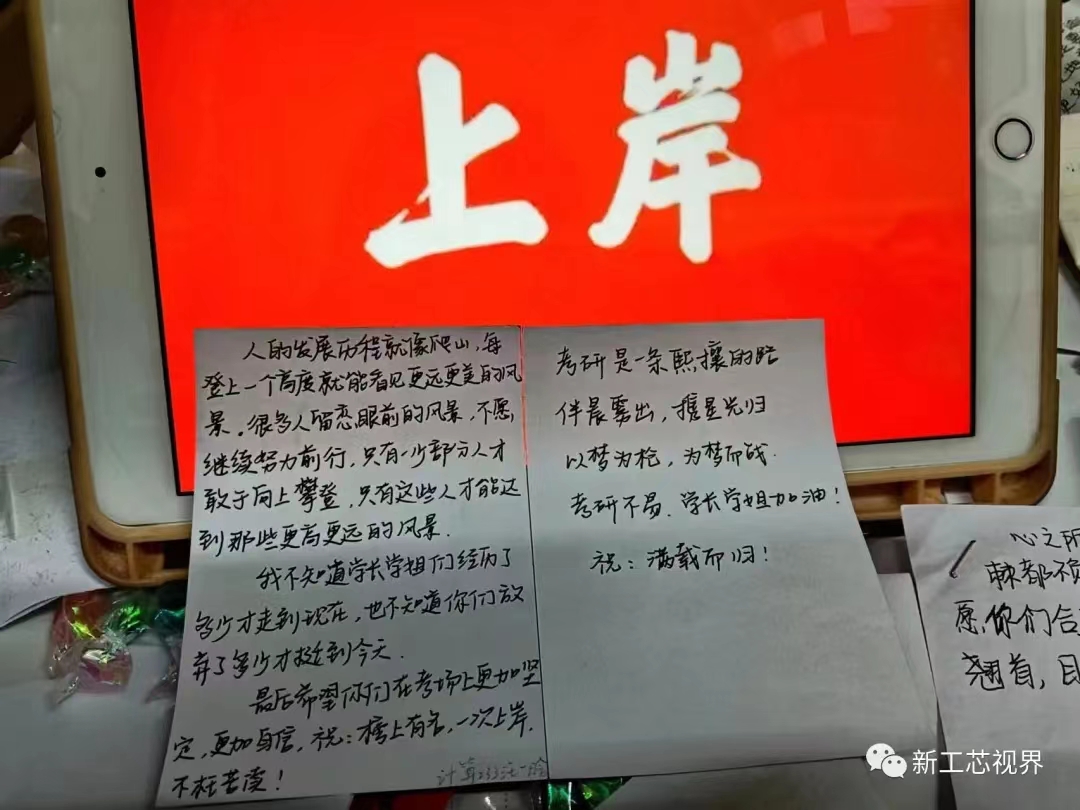 上岸
人的发展历程就像爬山，每
登上一个高度就能看见更远更美的风
景。很多人留恋眼前的风景，不愿
继续努力前行，只有一少部分人才
敢于向上攀登，只有这些人才能达
到那些更高更远的风景.
我不知道学长学姐们经历了
多少才走到现在，也不知道你们放
弃了多少才挺到今天.
最后希望你们在考场上更加坚
定，更加自信，祝：榜上有名，一次上岸，
不枉苦读！
考研是一条熙攘的路
伴晨雾出，携星光归
以梦为枪，为梦而战.
考研不易.学长学姐加油！
祝：满载而归！
心之所
棘都不负
愿你们合
翘首，目
新工芯视界